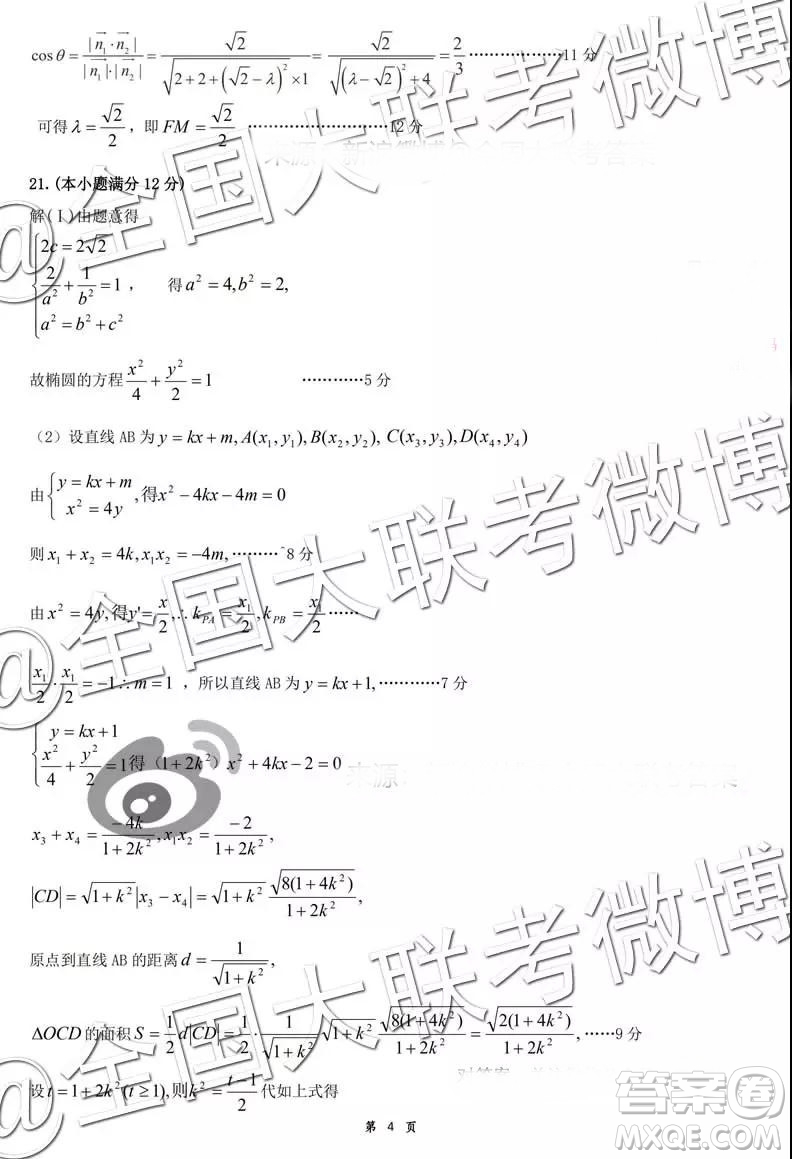 cosθ = |n₁·n₂| / (|n₁|·|n₂|) = √2 / √(2+2+(√2−λ)²×1) = √2 / √((λ−√2)²+4) = 2/3 ………………11 分
可得 λ = √2/2，即 FM = √2/2 ………………………12 分
21.(本小题满分 12 分)
解(Ⅰ)由题意得
{2c = 2√2
2/a² + 1/b² = 1， 得 a² = 4, b² = 2,
a² = b² + c²
故椭圆的方程 x²/4 + y²/2 = 1 …………5 分
（2）设直线 AB 为 y = kx + m, A(x₁, y₁), B(x₂, y₂), C(x₃, y₃), D(x₄, y₄)
由 {y = kx + m
x² = 4y ,得 x² − 4kx − 4m = 0
则 x₁ + x₂ = 4k, x₁x₂ = −4m, ………8 分
由 x² = 4y, 得 y' = x/2, ∴ k_PA = x₁/2, k_PB = x₁/2 ……
x₁/2 · x₁/2 = −1 ∴ m = 1 ，所以直线 AB 为 y = kx + 1, …………7 分
{y = kx + 1
x²/4 + y²/2 = 1 得（1 + 2k²）x² + 4kx − 2 = 0
x₃ + x₄ = −4k/(1 + 2k²), x₁x₂ = −2/(1 + 2k²),
|CD| = √(1 + k²)|x₃ − x₄| = √(1 + k²) √(8(1 + 4k²))/(1 + 2k²),
原点到直线 AB 的距离 d = 1/√(1 + k²),
ΔOCD 的面积 S = 1/2 d|CD| = 1/2 · 1/√(1 + k²) √(1 + k²) √(8(1 + 4k²))/(1 + 2k²) = √(2(1 + 4k²))/(1 + 2k²), ……9 分
设 t = 1 + 2k²(t ≥ 1), 则 k² = (t − 1)/2 代如上式得
第 4 页
@全国大联考微博
@全国大联考微博
@全国大联考微博
答案圈
MXQE.COM